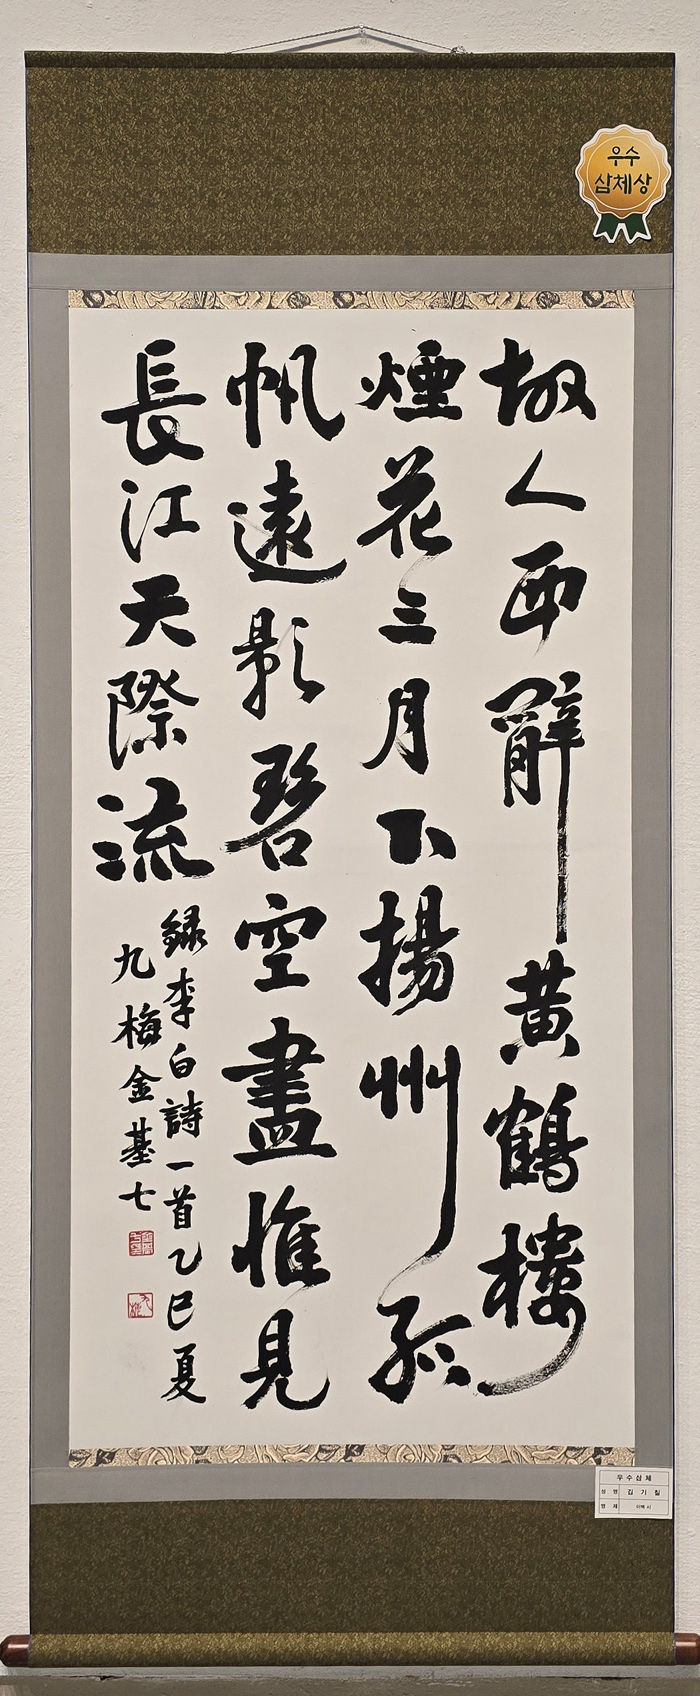 우수
삼체상
故人西辭黃鶴樓
煙花三月下揚州孤
帆遠影碧空盡惟見
長江天際流
錄李白詩一首乙巳夏
九梅金基七
우수삼체
성 명 김 기 칠
명 제 이백 시